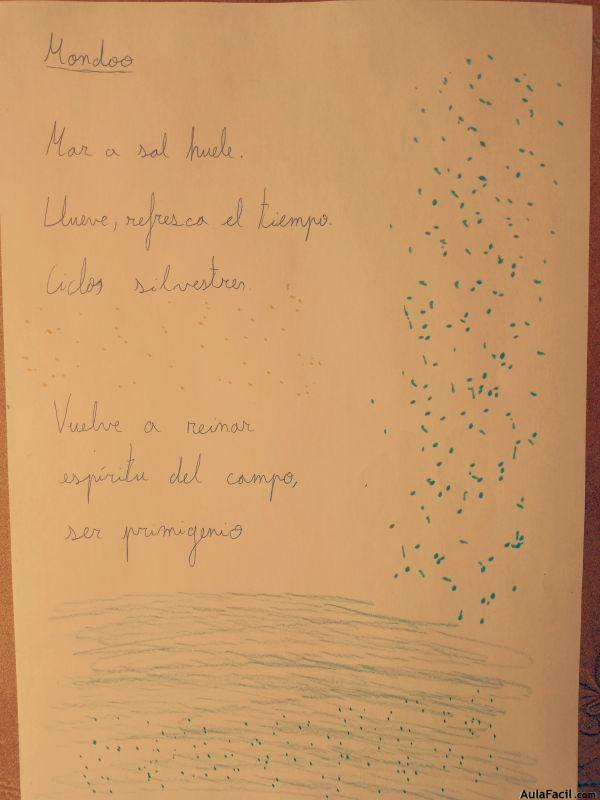 Mondoo
Mar a sal huele.
Llueve, refresca el tiempo.
Ciclos silvestres.
Vuelve a reinar
espíritu del campo,
ser primigenio
AulaFacil.com